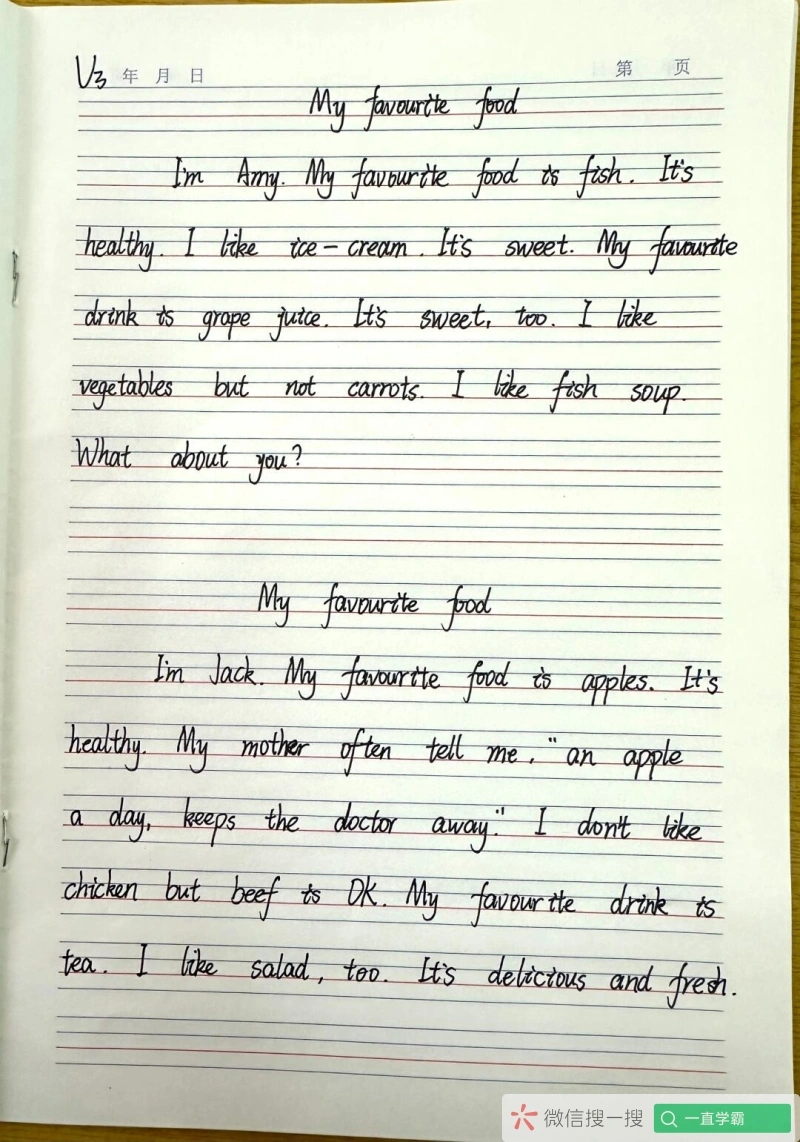 U3 年 月 日 第 页
My favourite food
I'm Amy. My favourite food is fish. It's
healthy. I like ice-cream. It's sweet. My favourite
drink is grape juice. It's sweet, too. I like
vegetables but not carrots. I like fish soup.
What about you?
My favourite food
I'm Jack. My favourite food is apples. It's
healthy. My mother often tell me, "an apple
a day, keeps the doctor away." I don't like
chicken but beef is OK. My favourite drink is
tea. I like salad, too. It's delicious and fresh.
微信搜一搜 一直学霸